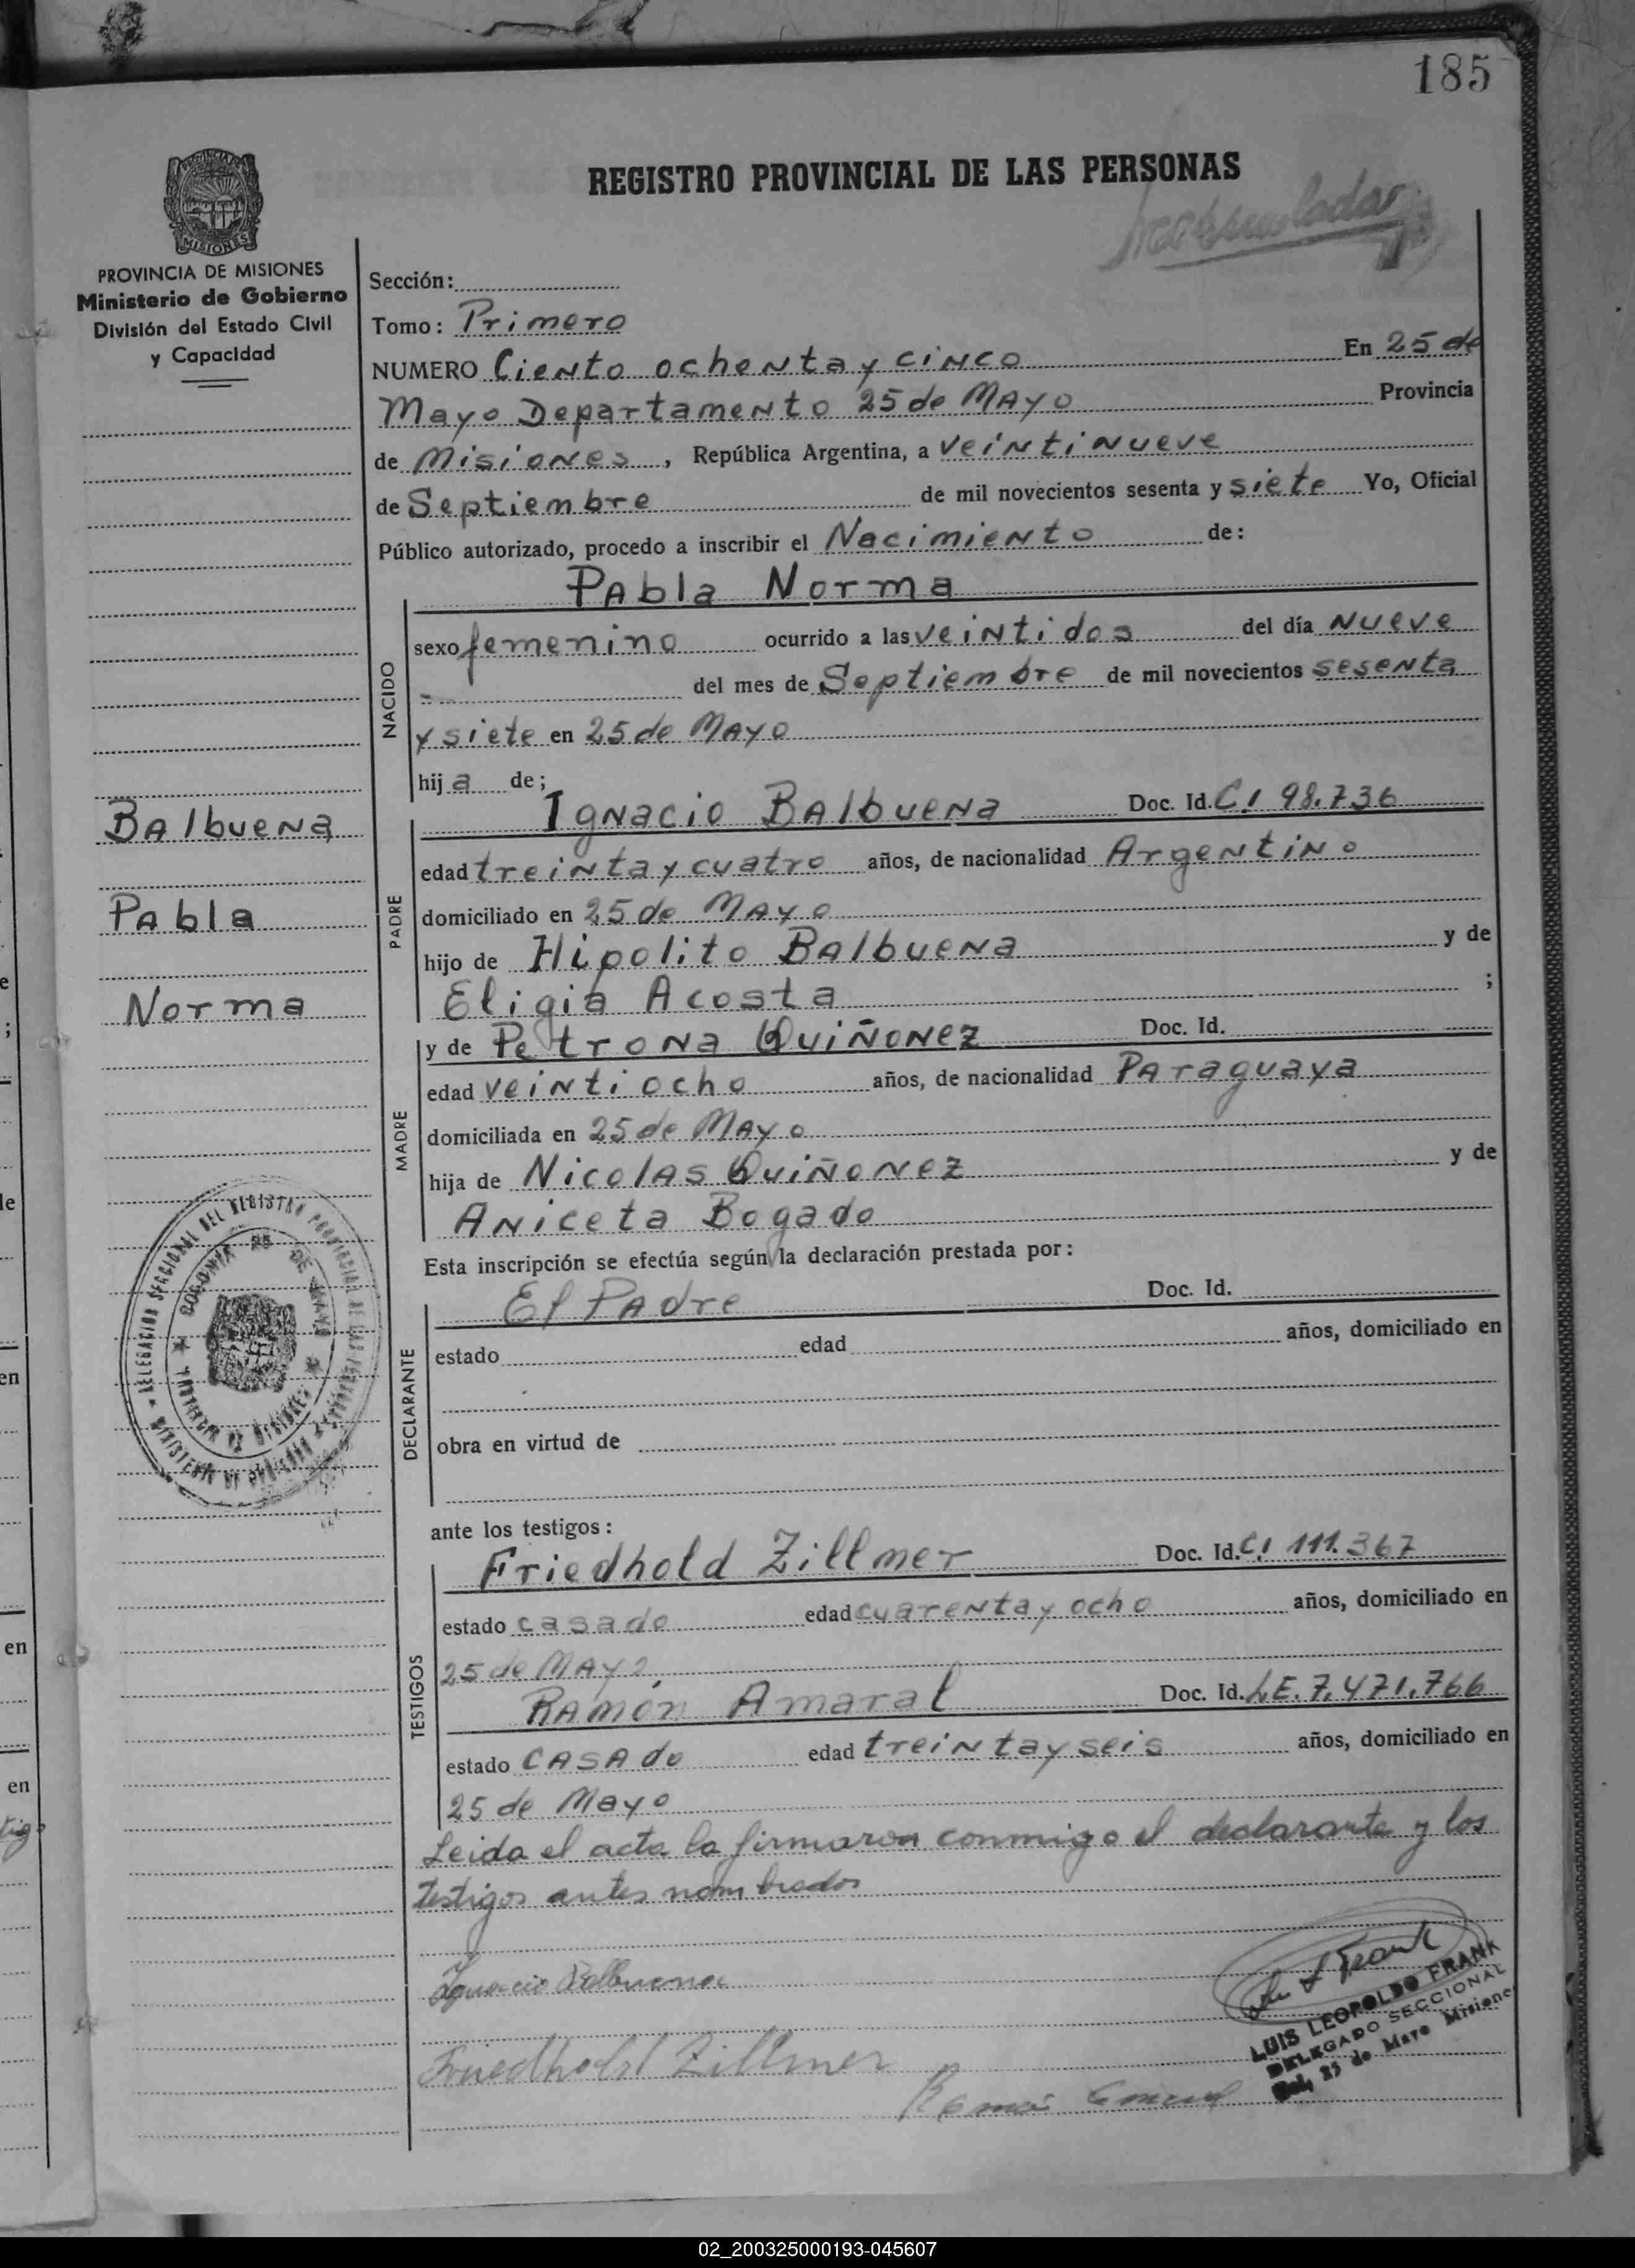 185
REGISTRO PROVINCIAL DE LAS PERSONAS
MISIONES
PROVINCIA DE MISIONES
Ministerio de Gobierno
División del Estado Civil
y Capacidad
Balbuena
Pabla
Norma
Sección:
Tomo: Primero
NUMERO Ciento ochenta y cinco En 25 de
Mayo Departamento 25 de Mayo Provincia
de Misiones, República Argentina, a veintinueve
de Septiembre de mil novecientos sesenta y siete Yo, Oficial
Público autorizado, procedo a inscribir el Nacimiento de:
Pabla Norma
NACIDO
sexo femenino ocurrido a las veintidos del día nueve
del mes de Septiembre de mil novecientos sesenta
y siete en 25 de Mayo
hija de;
Ignacio Balbuena Doc. Id. C.I 98.736
PADRE
edad treinta y cuatro años, de nacionalidad Argentino
domiciliado en 25 de Mayo
hijo de Hipolito Balbuena y de
Eligia Acosta ;
y de Petrona Quiñonez Doc. Id.
MADRE
edad veintiocho años, de nacionalidad Paraguaya
domiciliada en 25 de Mayo
hija de Nicolas Quiñonez y de
Aniceta Bogado
Esta inscripción se efectúa según la declaración prestada por:
El Padre Doc. Id.
DECLARANTE
estado edad años, domiciliado en
obra en virtud de
ante los testigos:
Friedhold Zillmer Doc. Id. C.I 111.367
TESTIGOS
estado casado edad cuarenta y ocho años, domiciliado en
25 de Mayo
Ramón Amaral Doc. Id. L.E. 7.471.766
estado casado edad treinta y seis años, domiciliado en
25 de Mayo
Leida el acta la firmaron conmigo el declarante y los
testigos antes nombrados
Ignacio Balbuena
Friedhold Zillmer
LUIS LEOPOLDO FRANK
DELEGADO SECCIONAL
25 de Mayo Misiones
02_200325000193-045607